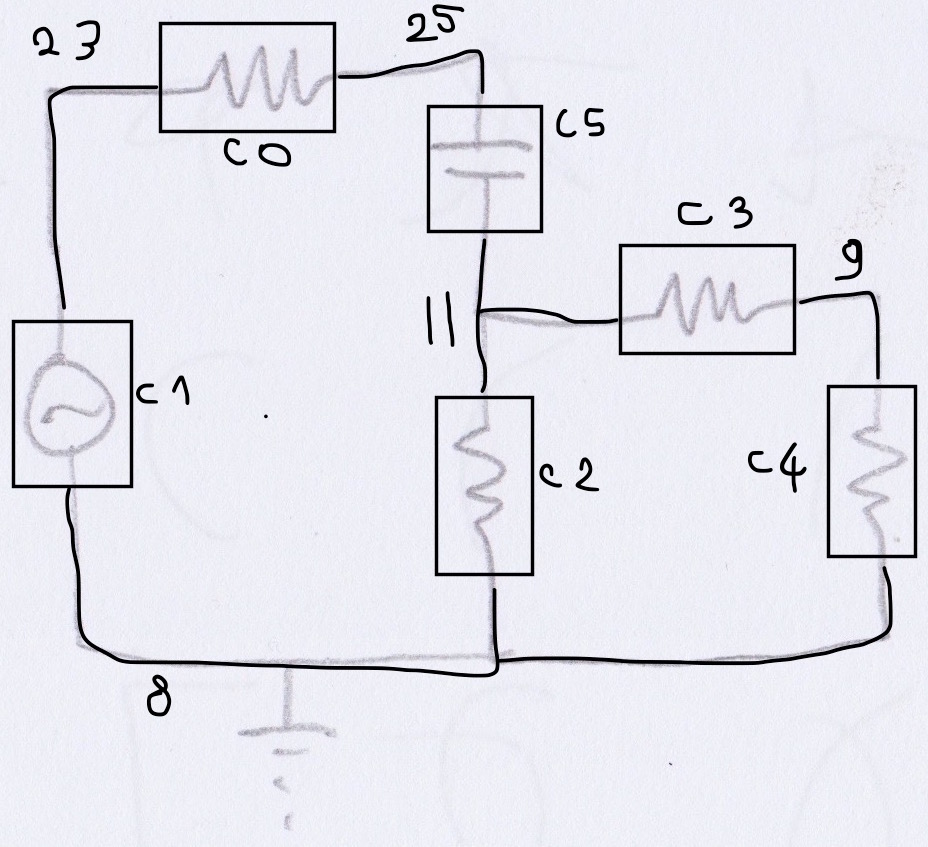 23
25
C0
C5
C3
9
11
C1
C2
C4
8